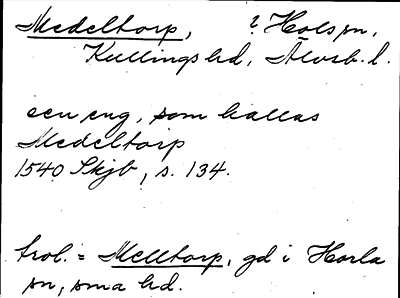 Medeltorp, ? Hols sn,
Kullings hd, Älvsb. l.
een eng, som kallas
Medeltorp
1540 Skjb, s. 134.
trol. = Melltorp, gd i Horla
sn, sma hd.